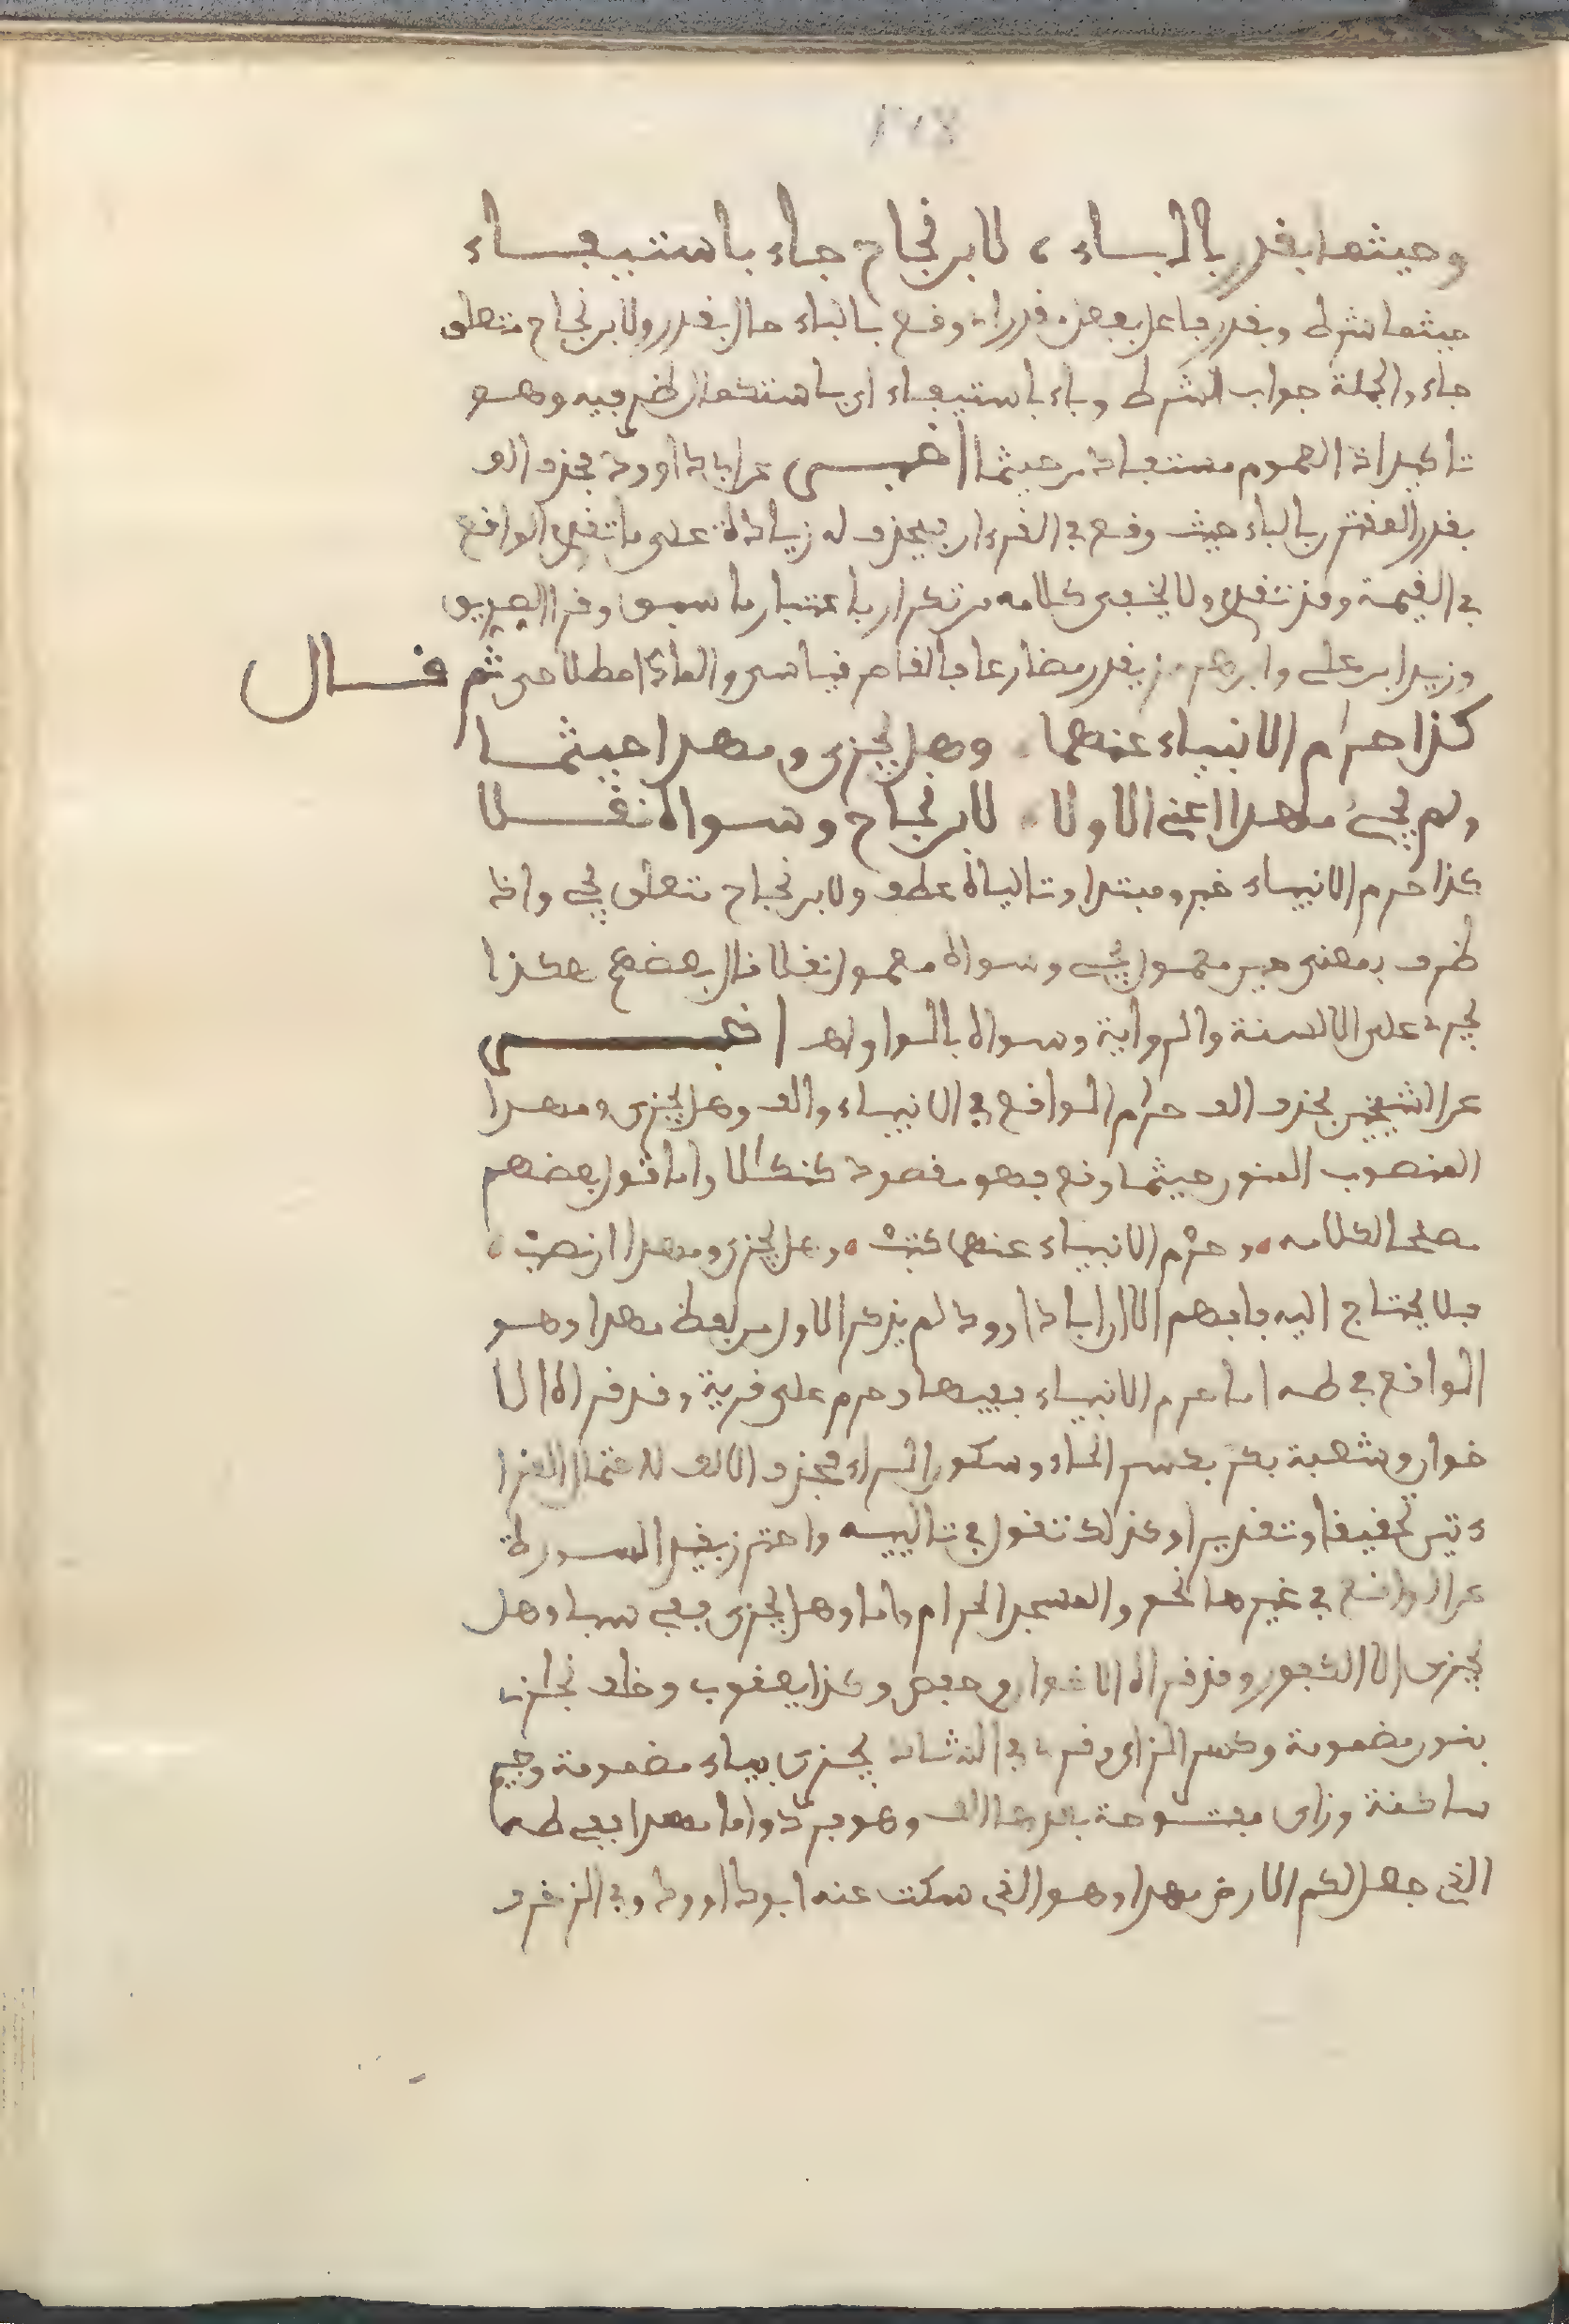 وحيثما بقدر بالباء ، لابن نجاح جاء باستيفاء
حيثما شرط وبقدر فاعل بفعل قدر أي وقع بالباء حال بقدر ولابن نجاح متعلق
جاء والجملة جواب الشرط وباء باستيفاء أي باستكمال ظرفيه وهو
تأكيد إذ العموم مستفاد من حيثما أخبر عن أبي داوود بحذف ألف
بقدر المقترن بالباء حيث وقع في القرءان فيحذف له زيادة على ما تقدم الواقع
في القيمة وقد تقدم ولا يخفى كلامه من تكرار باعتبار ما سبق وقرأ
وزيد ابن علي يقدر مضارعا فالفاصر قياسي والماضي اصطلاحي ثم قال
كذا حرام الأنبياء عنهما ، وهل يجزى ومهدا حيثما
ولم يجئ مهدا أعني الأولا ، لابن نجاح وسواه نقلا
كذا حرم الأنبياء خبر ومبتدا وتالياه عطف ولابن نجاح متعلق يجي وإذ
ظرف بمعنى حين معمول يجي وسواه معمول نقلا قال بعضهم هكذا
يجري على الألسنة والرواية وسواه بالواو اهـ أخبر
عن الشيخين بحذف ألف حرام الواقع في الأنبياء وألف وهل يجزى ومهدا
المنصوب المنون حيثما وقع فهو مقصود كنكالا وأما قول بعضهم
مصلحا لكلامه وحرم الأنبياء عنهما كتبت وهل يجزى ومهدا إن نصبت
فلا يحتاج إليه فافهم إلا أن أبا داوود لم يذكر الأول من لفظ مهدا وهو
الواقع في طه أما حرم الأنبياء ففيها وحرم على قرية وقد قرأه الا
خوان وشعبة بكسر الحاء وسكون الراء فحذف الألف لاحتمال القرا
ءتين تحقيقا وتقديرا وكذلك تقول في تالييه واحترز بقيد السورة
عن الواقع في غيرها نحو والمسجد الحرام وأما وهل يجزى ففي سبا وهل
يجزى إلا الكفور وقد قرأه الأخوان وحفص وكذا يعقوب وخلف نجازي
بنون مضمومة وكسر الزاي وقرئ في الشاذ يجزى بياء مضمومة وجيم
ساكنة وزاي مفتوحة بعدها ألف وأما مهدا ففي طه
الذي جعل لكم الأرض مهدا وهو الذي سكت عنه أبو داوود وفي الزخرف